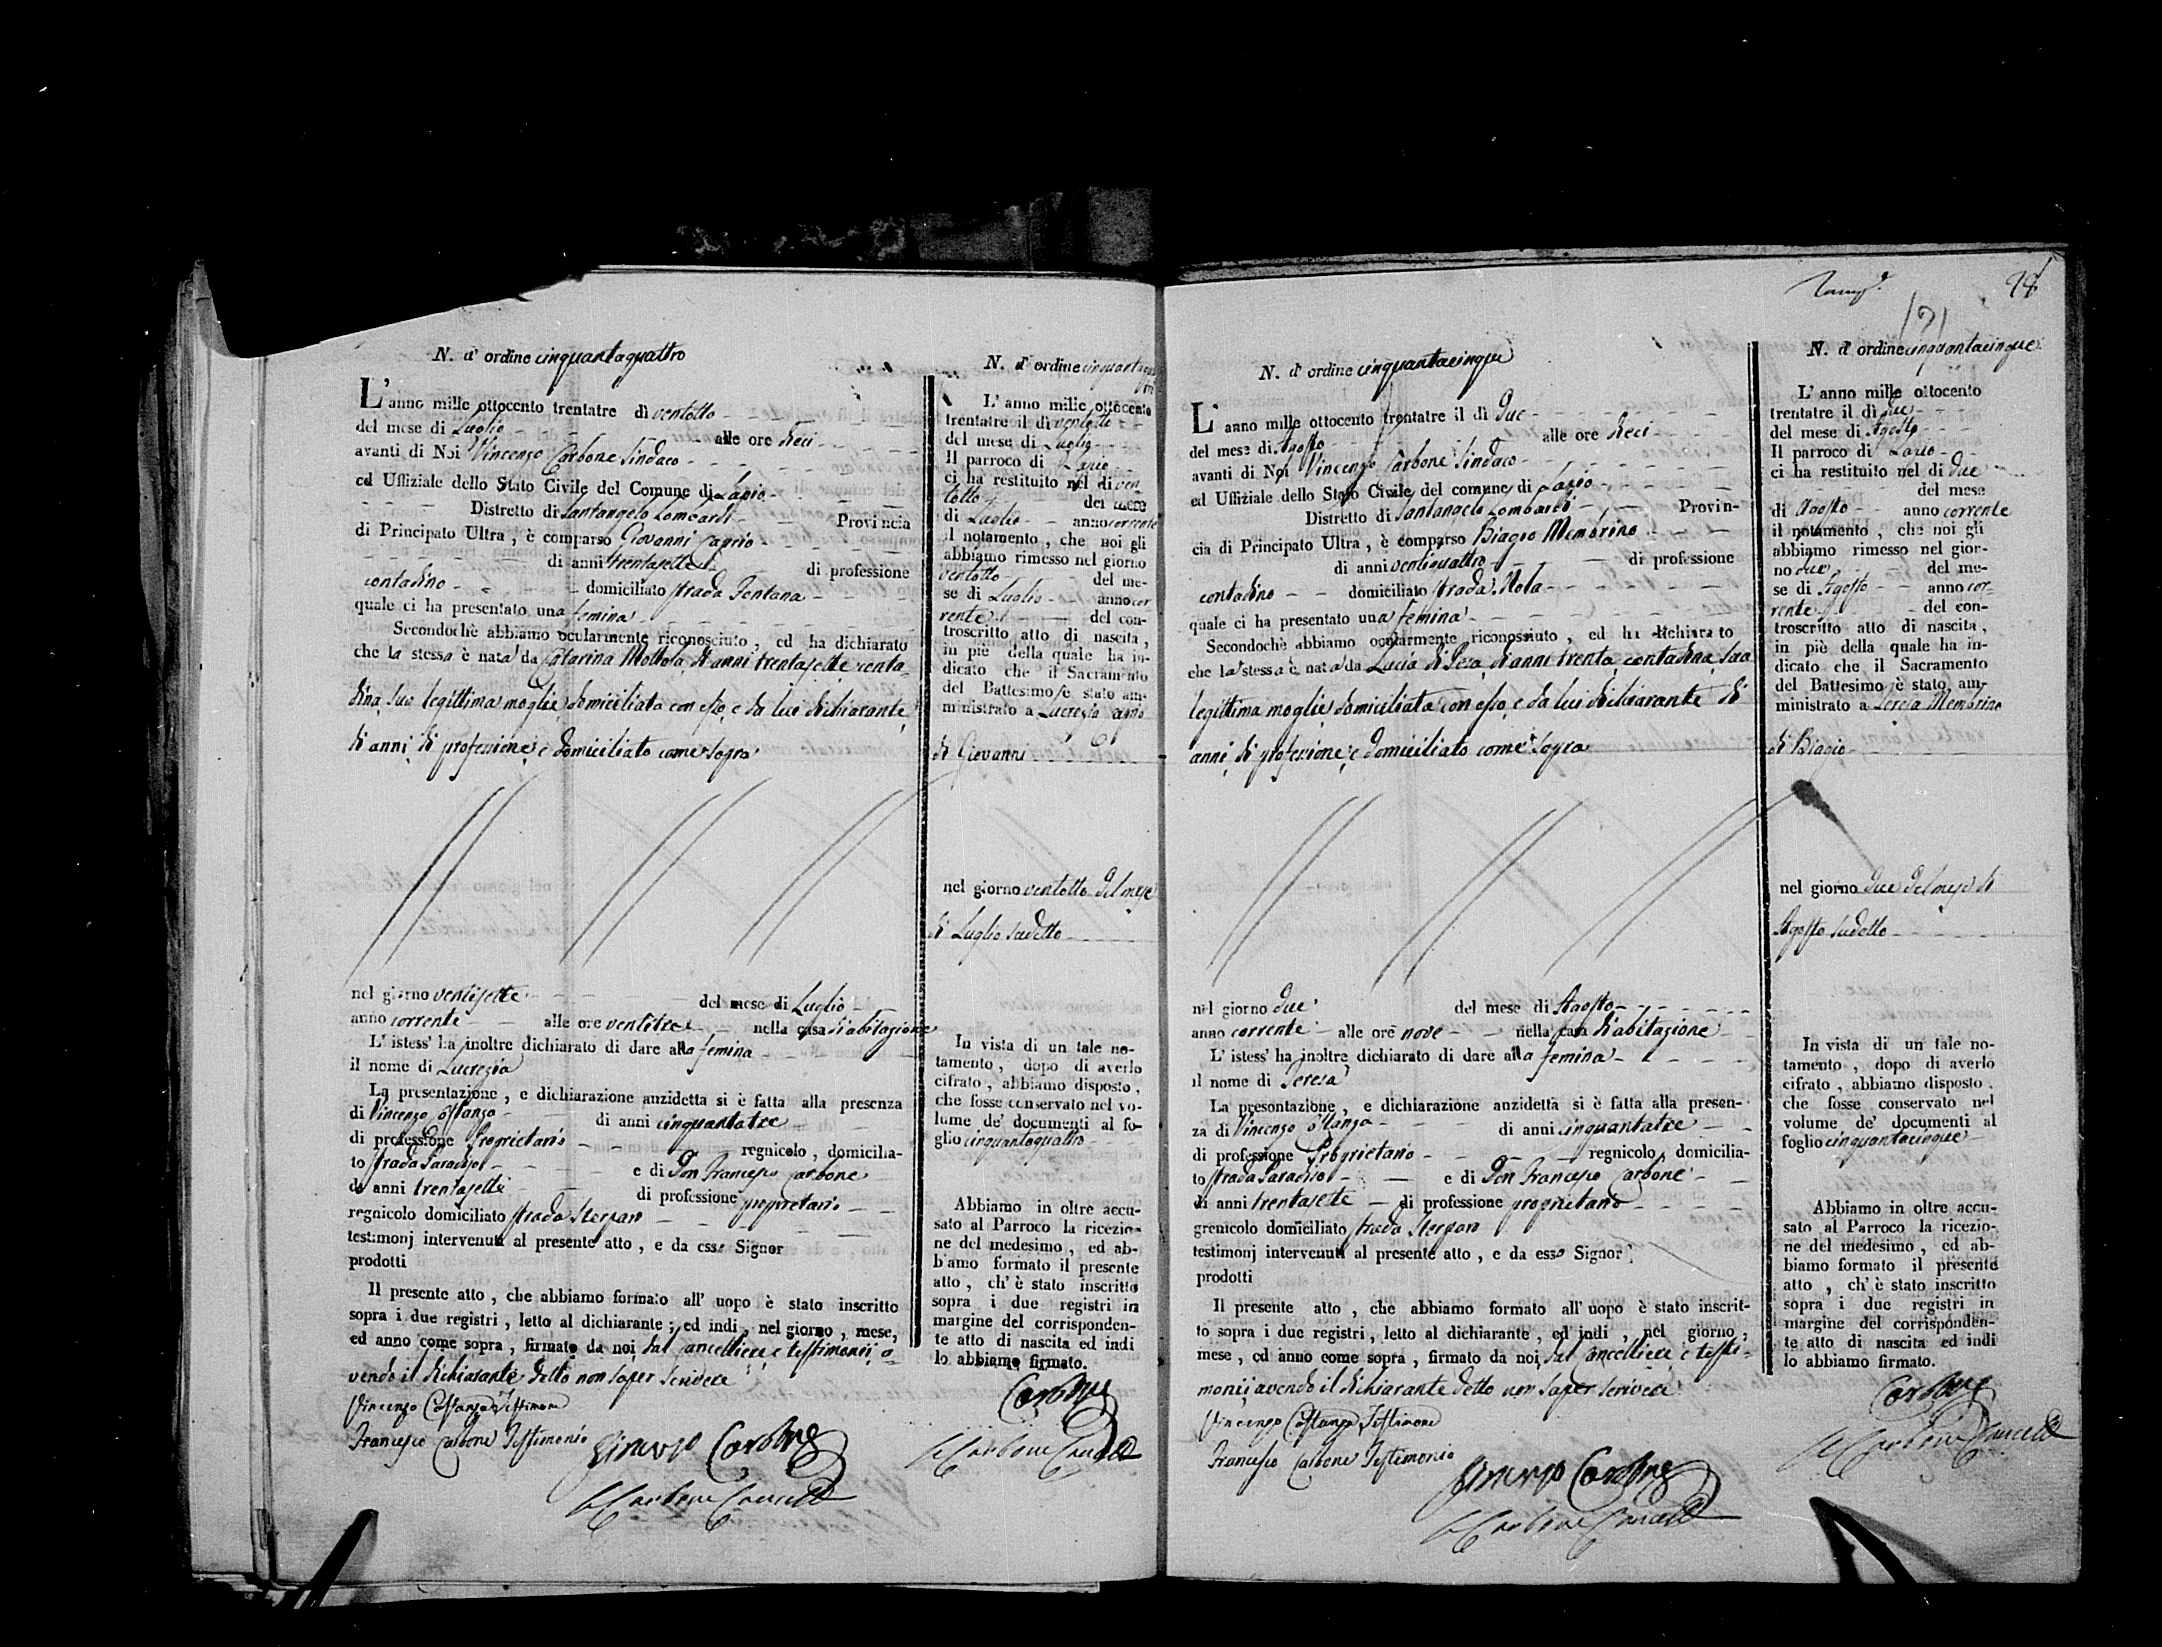 N. d' ordine cinquantaquattro
L' anno mille ottocento trentatre dì ventotto
del mese di Luglio alle ore dieci
avanti di Noi Vincenzo Carbone Sindaco
ed Uffiziale dello Stato Civile del Comune di Lapio
Distretto di Santangelo Lombardi Provincia
di Principato Ultra, è comparso Giovanni
di anni trentasette di professione
contadino domiciliato strada Fontana
quale ci ha presentato una femina
Secondochè abbiamo ocularmente riconosciuto, ed ha dichiarato
che la stessa è nata da Catarina Mottola di anni trentasette conta-
dina sua legittima moglie domiciliata con esso, e da lui dichiarante
di anni, di professione, e domiciliato come sopra
nel giorno ventisette del mese di Luglio
anno corrente alle ore ventitre nella casa d'abitazione
L' istess' ha inoltre dichiarato di dare alla femina
il nome di Lucrezia
La presentazione, e dichiarazione anzidetta si è fatta alla presenza
di Vincenzo Ostanzo di anni cinquantatre
di professione Proprietario regnicolo, domicilia-
to strada Paradiso e di Don Francesco Carbone
di anni trentasette di professione proprietario
regnicolo domiciliato strada
testimonj intervenuti al presente atto, e da esso Signor
prodotti
Il presente atto, che abbiamo formato all' uopo è stato inscritto
sopra i due registri, letto al dichiarante; ed indi, nel giorno, mese,
ed anno come sopra, firmato da noi, dal Cancelliere, e testimonii a-
vendo il dichiarante detto non saper scrivere
Vincenzo Costanzo Testimone
Francesco Carbone Testimonio
Vincenzo Carbone
Carbone Cancell
N. d' ordine
L' anno mille ottocento
trentatre il dì ventotto
del mese di Luglio
Il parroco di Lapio
ci ha restituito nel dì ven
totto del mese
di Luglio anno corrente
il notamento, che noi gli
abbiamo rimesso nel giorno
ventotto del me-
se di Luglio anno cor
rente del con-
troscritto atto di nascita,
in piè della quale ha in-
dicato che il Sacramento
del Battesimo è stato am-
ministrato a Lucrezia
di Giovanni
nel giorno ventotto del mese
di Luglio sudetto
In vista di un tale no-
tamento, dopo di averlo
cifrato, abbiamo disposto,
che fosse conservato nel vo-
lume de' documenti al fo-
glio cinquantaquattro
Abbiamo in oltre accu-
sato al Parroco la ricezio-
ne del medesimo, ed ab-
biamo formato il presente
atto, ch' è stato inscritto
sopra i due registri in
margine del corrisponden-
te atto di nascita ed indi
lo abbiamo firmato.
Carbone
Carbone Cancell
N. d' ordine cinquantacinque
L' anno mille ottocento trentatre il dì due
del mese di Agosto alle ore dieci
avanti di Noi Vincenzo Carbone Sindaco
ed Uffiziale dello Stato Civile del comune di Lapio
Distretto di Santangelo Lombardi Provin-
cia di Principato Ultra, è comparso Biagio Membrino
di anni ventiquattro di professione
contadino domiciliato strada Nola
quale ci ha presentato una femina
Secondochè abbiamo ocularmente riconosciuto, ed ha dichiarato
che la stessa è nata da Lucia di anni trenta contadina sua
legittima moglie domiciliata con esso, e da lui dichiarante di
anni, di professione, e domiciliato come sopra
nel giorno due del mese di Agosto
anno corrente alle ore nove nella casa d'abitazione
L' istess' ha inoltre dichiarato di dare alla femina
il nome di Teresa
La presentazione, e dichiarazione anzidetta si è fatta alla presen-
za di Vincenzo Ostanzo di anni cinquantatre
di professione Proprietario regnicolo, domicilia-
to strada Paradiso e di Don Francesco Carbone
di anni trentasette di professione proprietario
gregnicolo domiciliato strada
testimonj intervenuti al presente atto, e da esso Signor
prodotti
Il presente atto, che abbiamo formato all' uopo è stato inscrit-
to sopra i due registri, letto al dichiarante, ed indi, nel giorno,
mese, ed anno come sopra, firmato da noi, dal Cancelliere, e testi-
monii avendo il dichiarante detto non saper scrivere
Vincenzo Costanzo Testimone
Francesco Carbone Testimonio
Vincenzo Carbone
Carbone Cancell
N. d' ordine cinquantacinque
L' anno mille ottocento
trentatre il dì due
del mese di Agosto
Il parroco di Lapio
ci ha restituito nel dì due
del mese
di Agosto anno corrente
il notamento, che noi gli
abbiamo rimesso nel gior-
no due del me-
se di Agosto anno cor-
rente del con-
troscritto atto di nascita,
in piè della quale ha in-
dicato che il Sacramento
del Battesimo è stato am-
ministrato a Teresa Membrino
di Biagio
nel giorno due del mese di
Agosto sudetto
In vista di un tale no-
tamento, dopo di averlo
cifrato, abbiamo disposto,
che fosse conservato nel
volume de' documenti al
foglio cinquantacinque
Abbiamo in oltre accu-
sato al Parroco la ricezio-
ne del medesimo, ed ab-
biamo formato il presente
atto, ch' è stato inscritto
sopra i due registri in
margine del corrisponden-
te atto di nascita ed indi
lo abbiamo firmato.
Carbone
Carbone Cancell